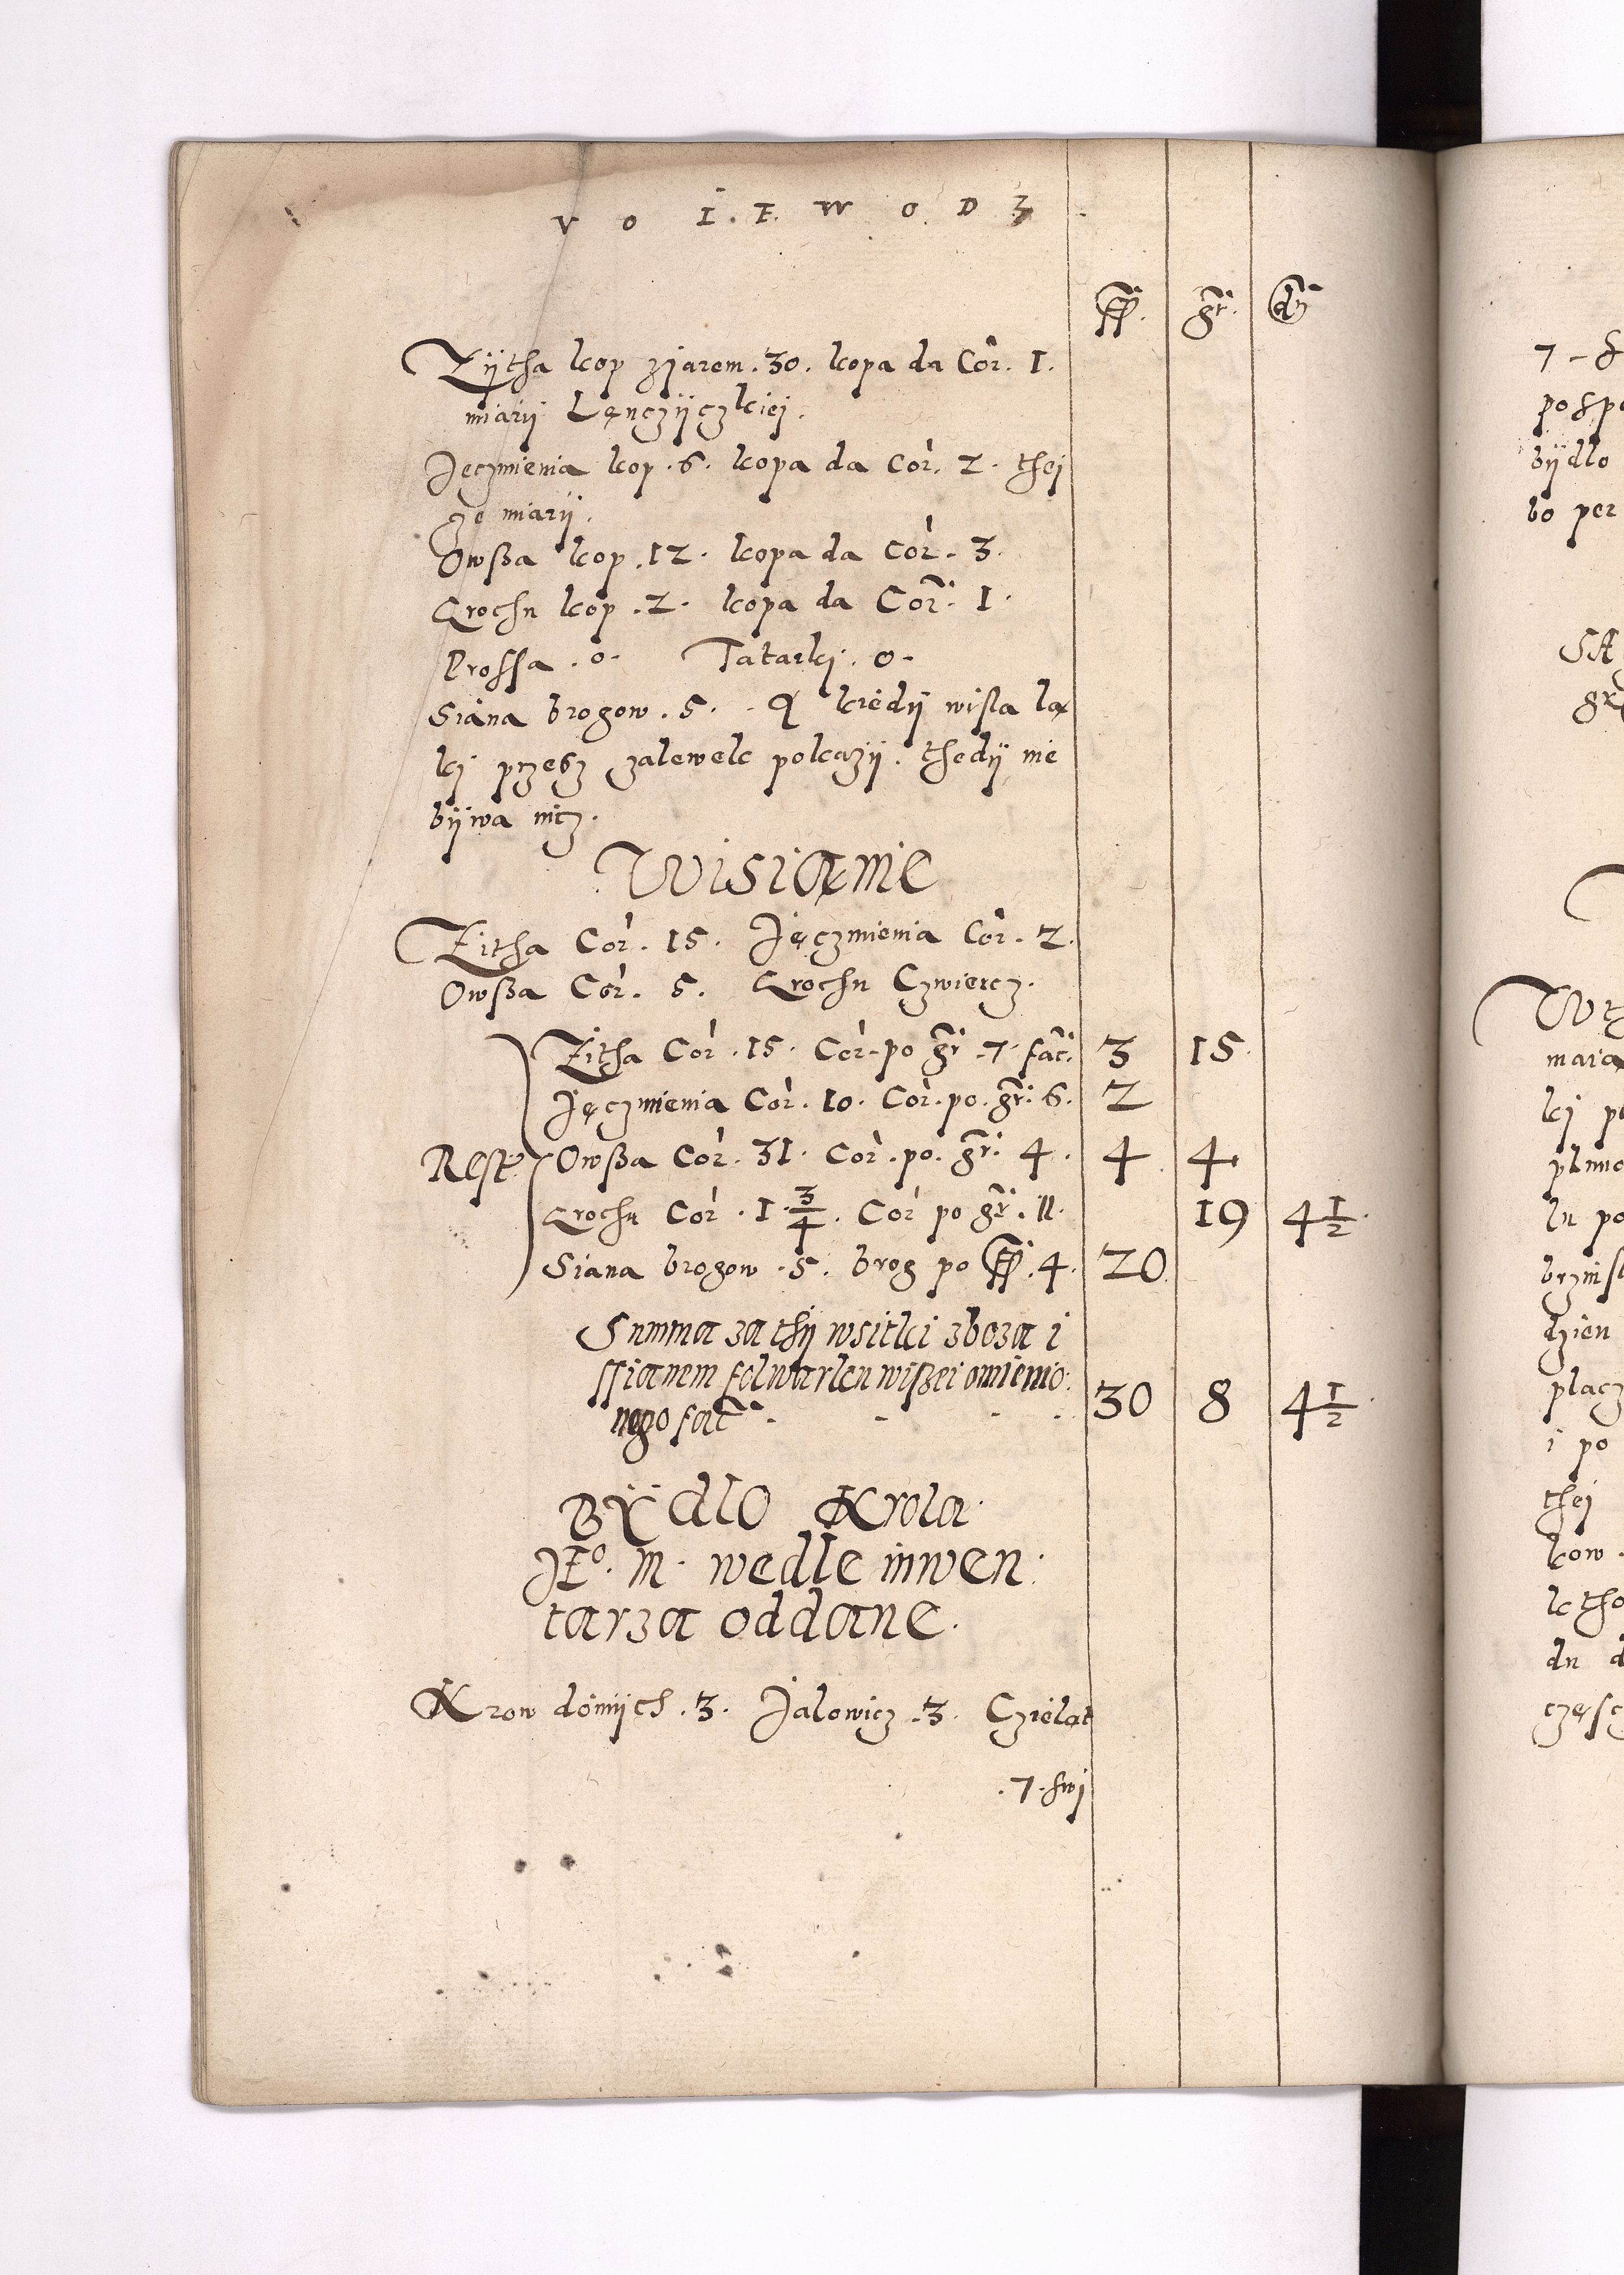 V O I . E . W O D Z
ff. gr. dn
Zÿtha kop zjarem . 30 . kopa da Cor. 1.
miarÿ Lęnczÿczkiej.
Jęczmienia kop . 6 . kopa da Cor. 2 . thej
ze miarÿ.
Owßa kop . 12 . kopa da Cor. 3.
Grochu kop . 2 . kopa da Cor. 1.
Prossa . 0 . Tatarkj . 0 .
Siana brogow . 5 . A kiedÿ wisla lą
kj przesz zalewek pokazÿ . thedÿ nie
bÿwa nicz.
Wisianie
Zitha Cor . 15 . Jęczmienia Cor . 2.
Owßa Cor. 5 . Grochu Czwiercz.
Zitha Cor . 15 . Cor. po gr . 7 . fac. 3 15.
Jęczmienia Cor . 10 . Cor . po . gr . 6. 2
Rest Owßa Cor . 31 . Cor . po . gr . 4 . 4 4
Grochu Cor . 1 . 3/4 . Cor po gr . 11. 19 4 1/2.
Siana brogow . 5 . brog po ff . 4. 20
Summa za thÿ wsitki zboza i
ssianem folwarku wißei omienio:
nego fact . - - - 30 8 4 1/2.
BŸdlo Krola
JE°. M . wedle inwen:
tarza oddane.
Krow doinÿch . 3 . Jalowicz . 3 . Czieląt
. 7 . swj
7 -
pospo
bÿdlo
bo per
kj po
lu po
dzien
placz
i po
thej
kow .
k tho
du d